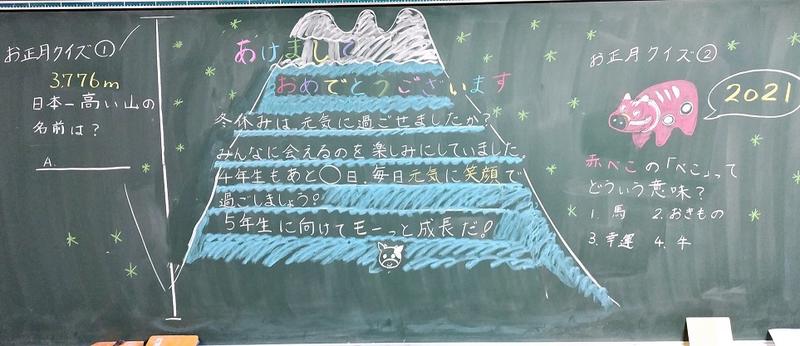 お正月クイズ①
3776m
日本一高い山の
名前は?
A.
あけまして
おめでとうございます
冬休みは元気に過ごせましたか?
みんなに会えるのを楽しみにしていました。
4年生もあと〇日、毎日元気に笑顔で
過ごしましょう!
5年生に向けてモーっと成長だ!
お正月クイズ②
2021
赤べこの「べこ」って
どういう意味?
1. 馬 2. おきもの
3. 幸運 4. 牛